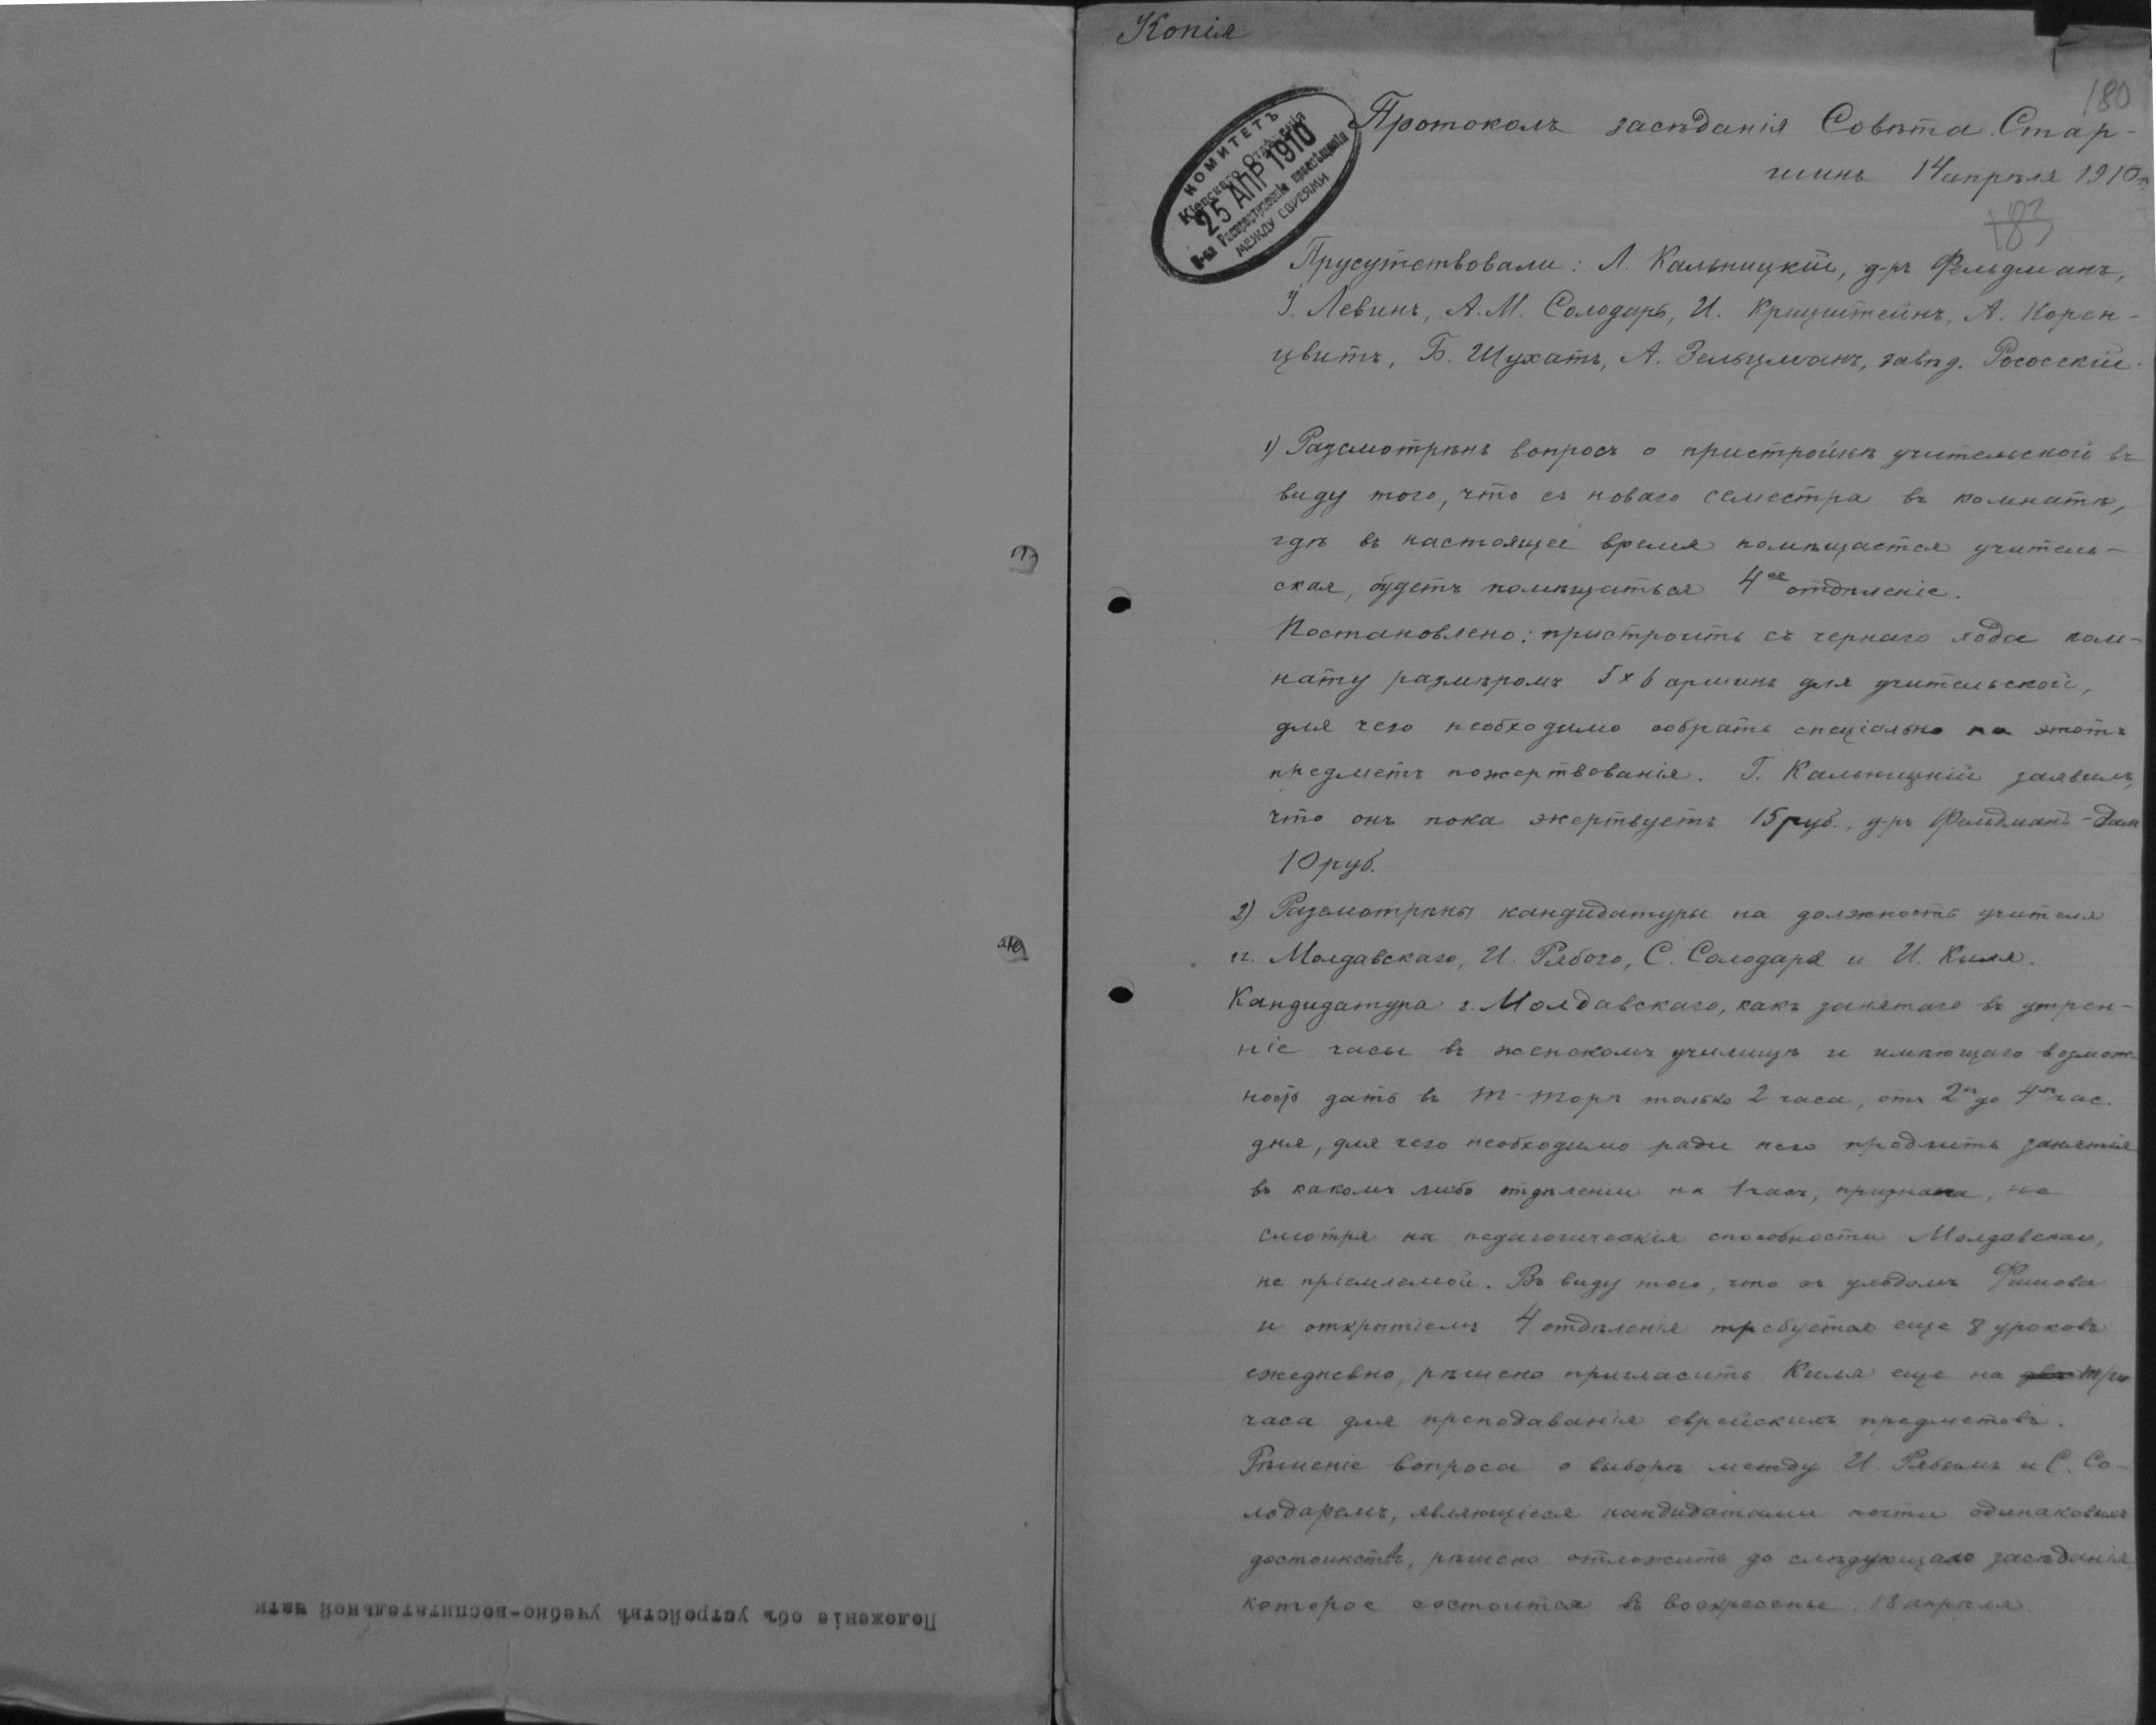 Копія
180
Протоколъ засѣданія Совѣта Стар-
шинъ 14 апрѣля 1910 г.
183
КОМИТЕТЪ
Кіевскаго Отдѣленія
25 АПР 1910
О-ва Распространенія просвѣщенія
МЕЖДУ ЕВРЕЯМИ
Прусутствовали: Л. Кальницкій, д-ръ Фельдманъ,
І. Левинъ, А. М. Солодарь, И. Крицштейнъ, А. Корен-
цвитъ, Б. Шухатъ, А. Зельцманъ, завѣд. Рососскій.
1) Разсмотрѣнъ вопросъ о пристройкѣ учительской въ
виду того, что съ новаго семестра въ комнатѣ,
гдѣ въ настоящее время помѣщается учитель-
ская, будетъ помѣщаться 4ое отдѣленіе.
Постановлено: пристроить съ чернаго хода ком-
нату размѣромъ 5 x 6 аршинъ для учительской,
для чего необходимо собрать спеціально на этотъ
предметъ пожертвованія. Г. Кальницкій заявилъ,
что онъ пока жертвуетъ 15 руб., д-ръ Фельдманъ - дал
10 руб.
2) Разсмотрѣны кандидатуры на должность учителя
г. Молдавскаго, И. Рябого, С. Солодаря и И. Киля.
Кандидатура г. Молдавскаго, какъ занятаго въ утрен-
ніе часы въ женскомъ училищѣ и имѣющаго возмож-
ность дать въ Т-Торѣ только 2 часа, отъ 2хъ до 4хъ час.
дня, для чего необходимо ради него продлить занятія
въ какомъ либо отдѣленіи на 1 часъ, признана, не
смотря на педагогическія способности Молдавскаго,
не пріемлемой. Въ виду того, что съ уходомъ
и открытіемъ 4 отдѣленія требуется еще 8 уроковъ
ежедневно, рѣшено пригласить Киля еще на два три
часа для преподаванія еврейскихъ предметовъ.
Рѣшеніе вопроса о выборѣ между И Рябымъ и С. Со-
лодаремъ, являющіеся кандидатами почти одинаковыхъ
достоинствъ, рѣшено отложить до слѣдующаго засѣданія,
которое состоится въ воскресенье 18 апрѣля.
Положеніе объ устройствѣ учебно-воспитательной части